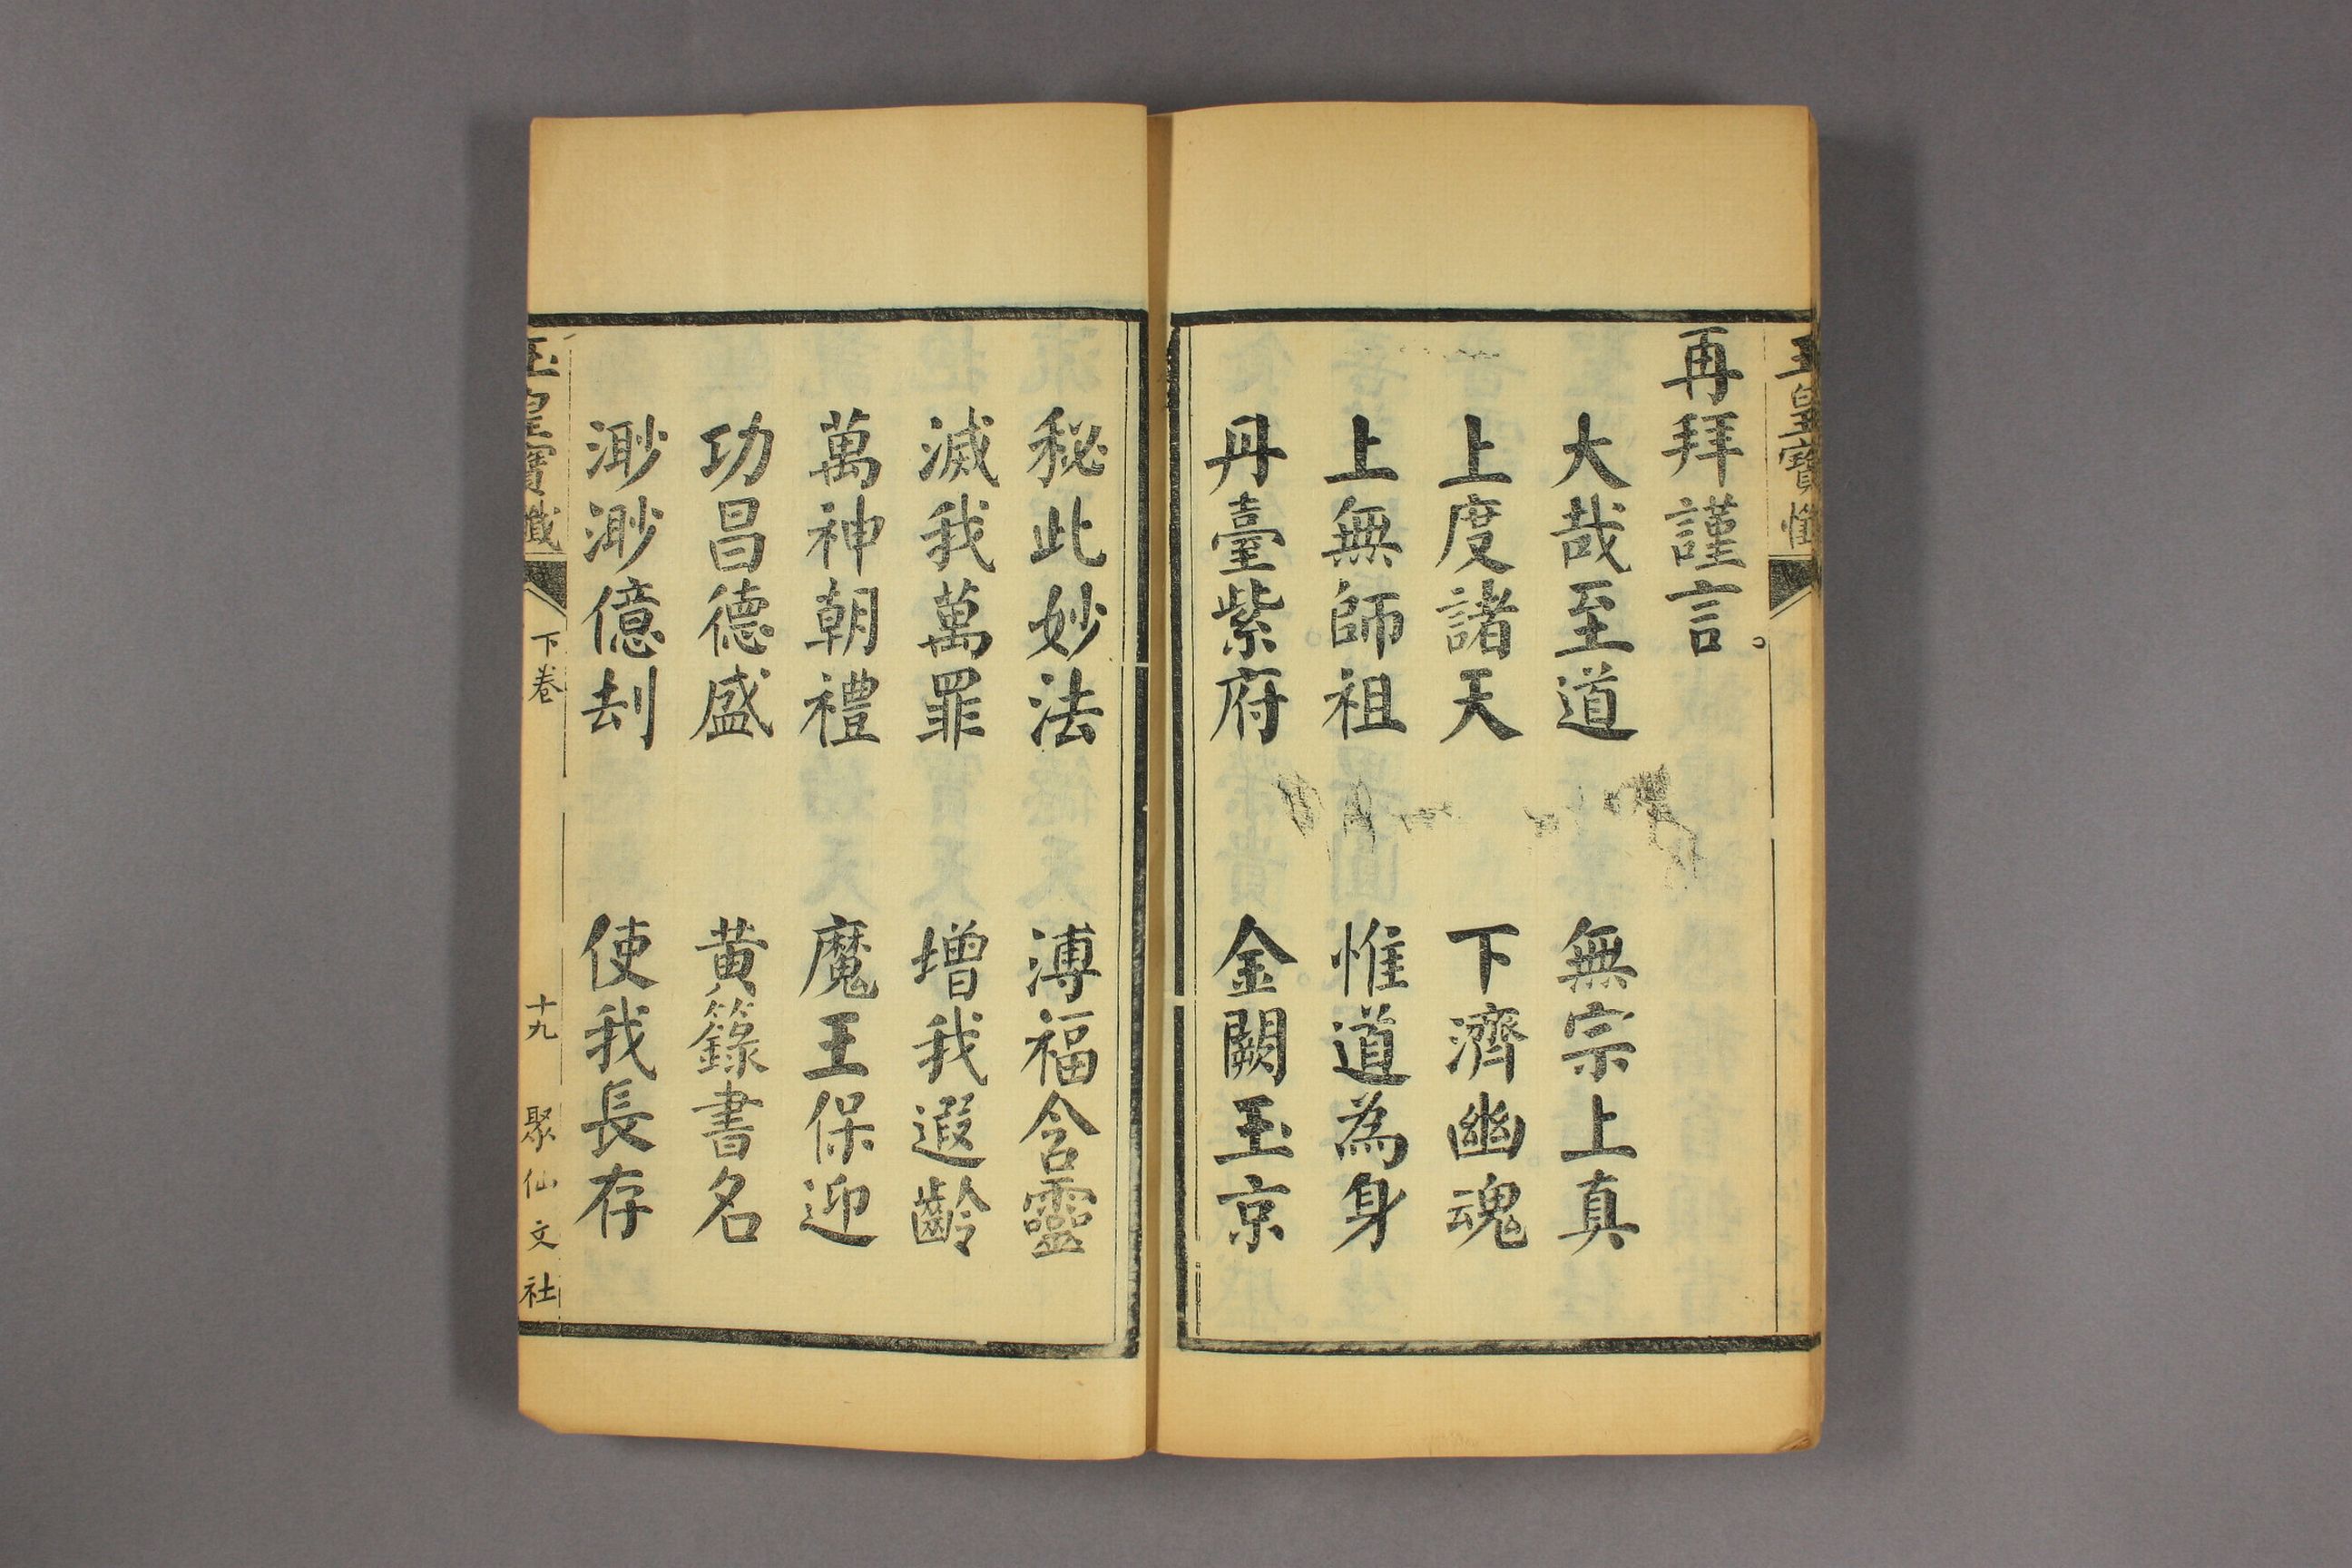 玉皇寶懺
再拜謹言。
大哉至道　無宗上真
上度諸天　下濟幽魂
上無師祖　惟道為身
丹臺紫府　金闕玉京
秘此妙法　溥福含靈
滅我萬罪　增我遐齡
萬神朝禮　魔王保迎
功昌德盛　黃籙書名
渺渺億刦　使我長存
玉皇寶懺　下卷　十九　聚仙文社